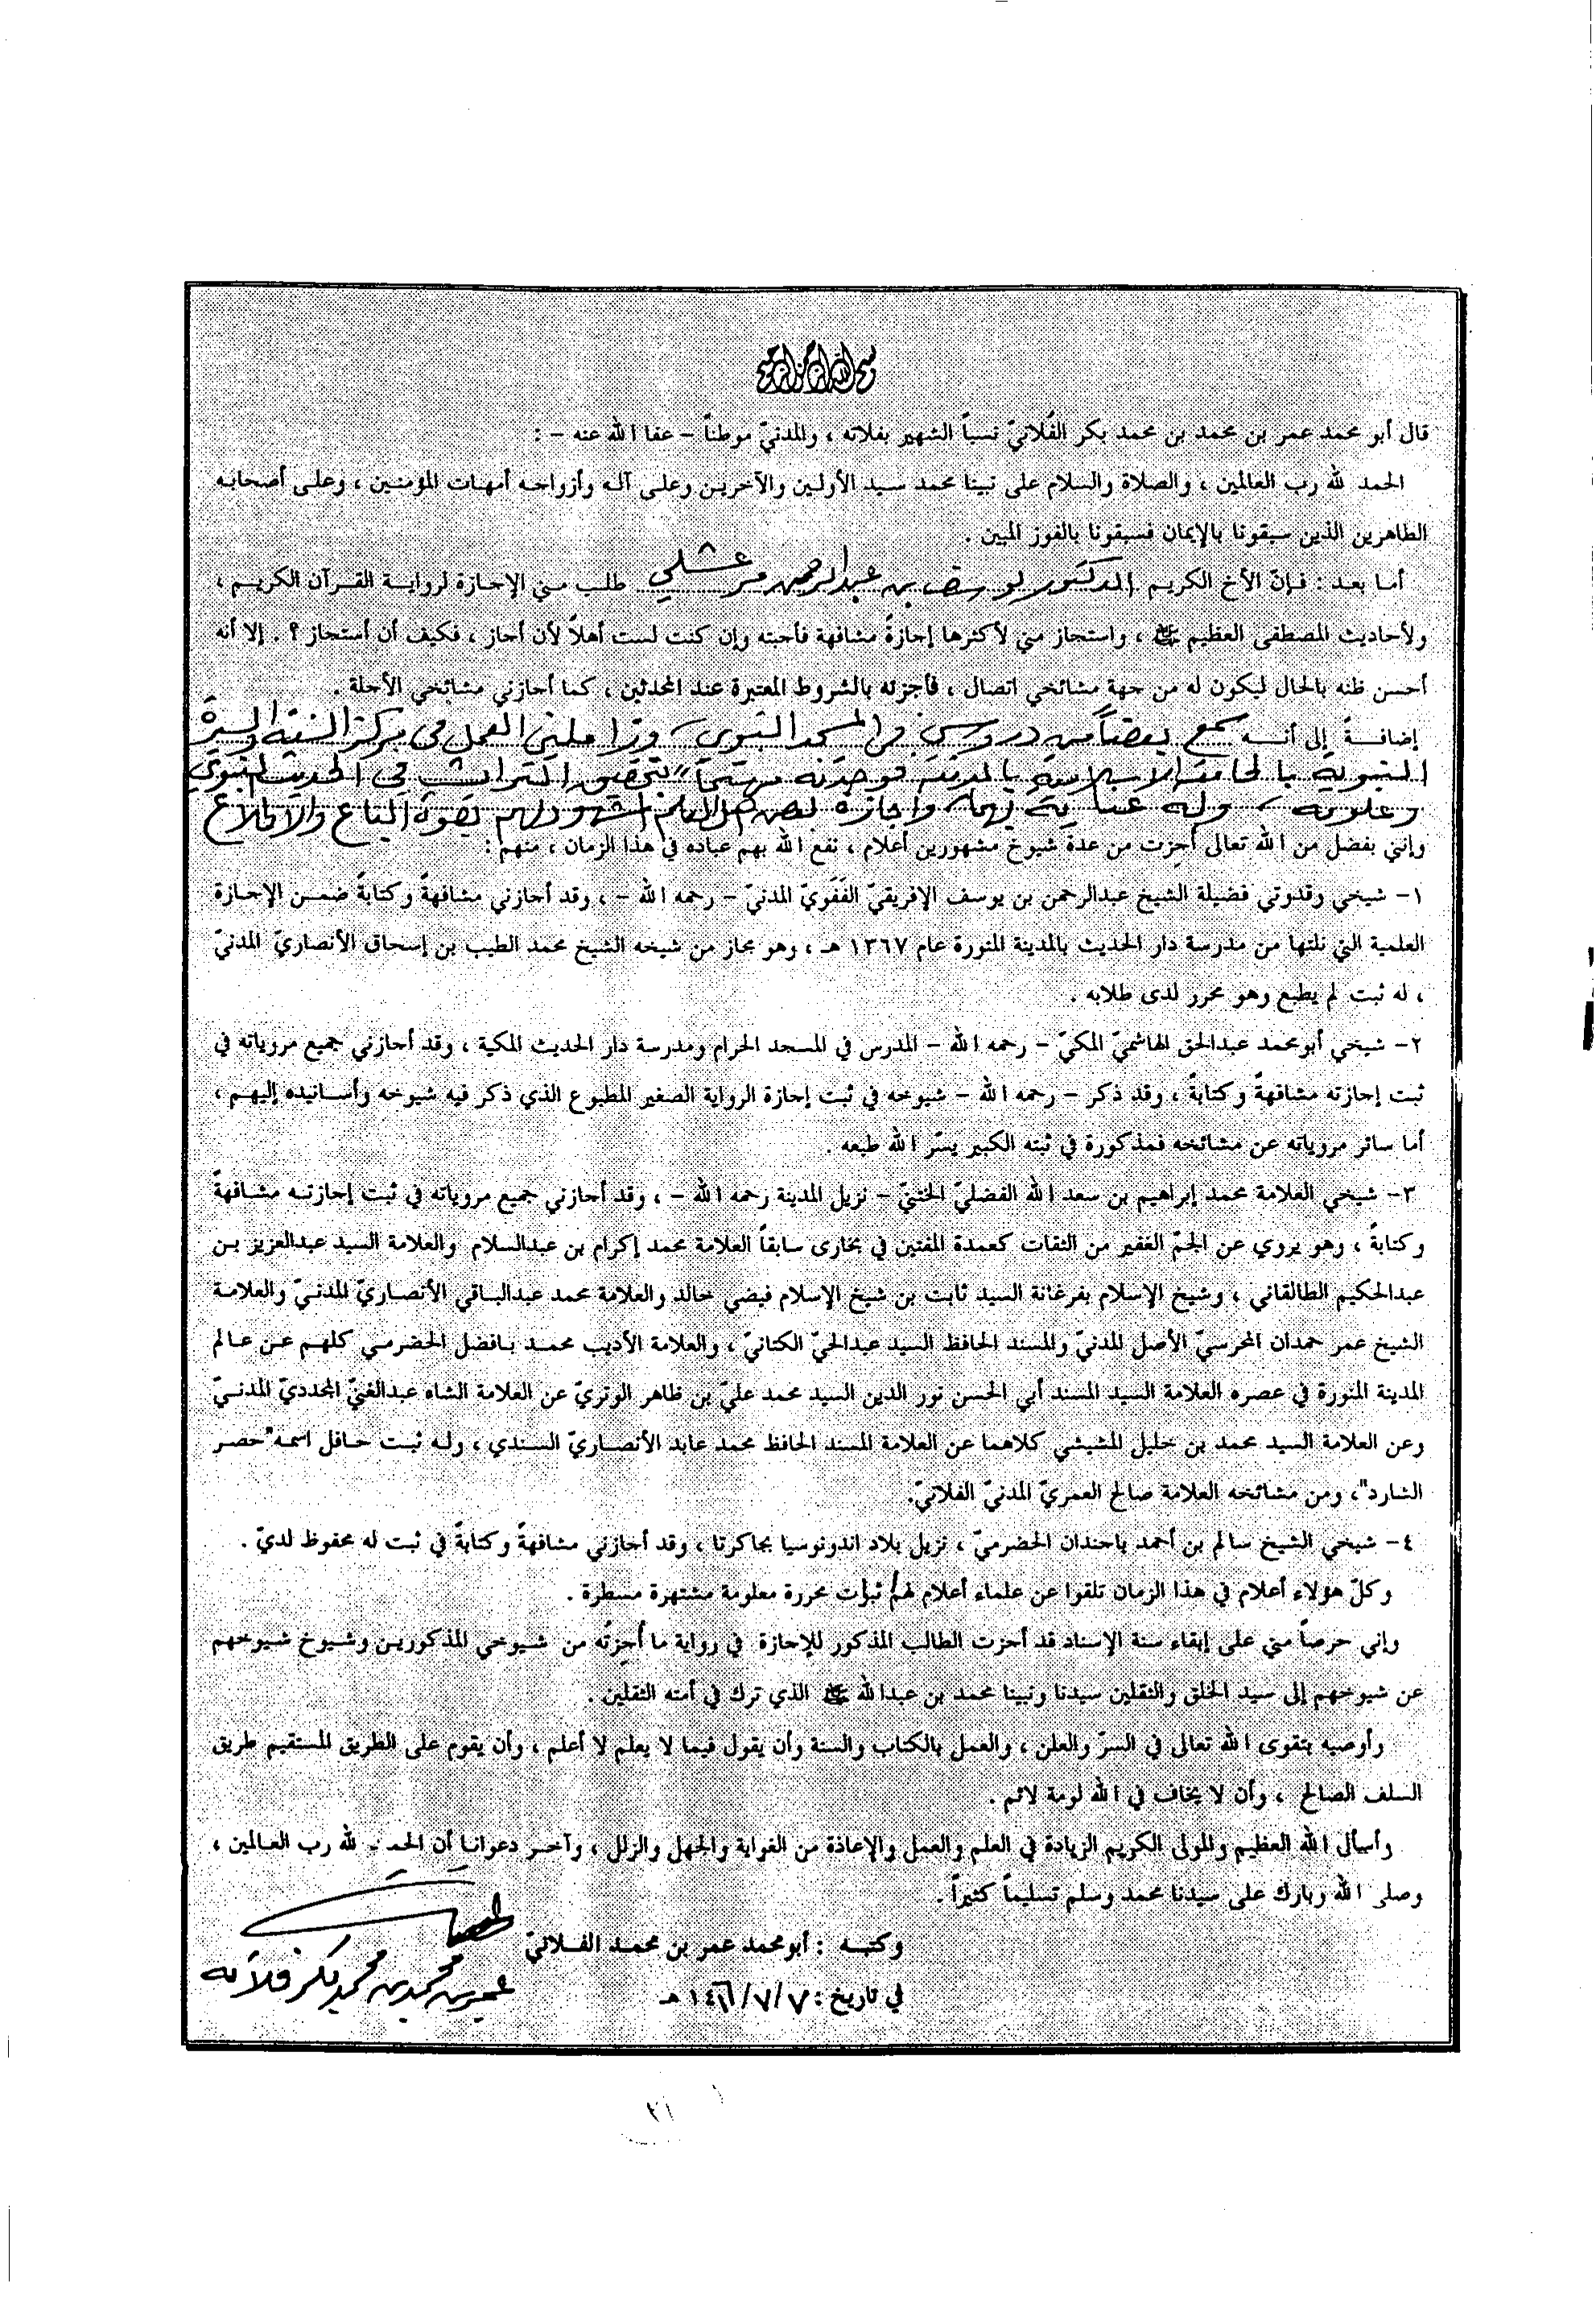 بسم الله الرحمن الرحيم
قال أبو محمد عمر بن محمد بن محمد بكر الفُلانيّ نسباً الشهير بفلاته ، والمدنيّ موطناً - عفا الله عنه - :
الحمد لله رب العالمين ، والصلاة والسلام على نبينا محمد سيد الأولين والآخرين وعلى آله وأزواجه أمهات المؤمنين ، وعلى أصحابه
الطاهرين الذين سبقونا بالإيمان فسبقونا بالفوز المبين .
أما بعد : فإنّ الأخ الكريم الدكتور يوسف بن عبدالرحمن مرعشلي طلب مني الإجازة لرواية القرآن الكريم ،
ولأحاديث المصطفى العظيم ﷺ ، واستجاز مني لأكثرها إجازةً مشافهة فأجبته وإن كنت لست أهلاً لأن أجاز ، فكيف أن أستجاز ؟ . إلا أنه
أحسن ظنه بالحال ليكون له من جهة مشائخي اتصال ، فأجزته بالشروط المعتبرة عند المحدثين ، كما أجازني مشائخي الأجلة .
إضافةً إلى أنه سمع بعضاً من دروسي في المسجد النبوي ، وزاملني العمل في مركز السنة والسيرة
النبوية بالجامعة الاسلامية بالمدينة فوجدته مهتماً بتحقيق التراث في الحديث النبوي
وعلومه ، وله عناية بهما، وإجازة بعض أهل العلم المشهود لهم بقوة الباع والاطلاع
وإنني بفضل من الله تعالى أُجزت من عدة شيوخ مشهورين أعلام ، نفع الله بهم عباده في هذا الزمان ، منهم :
١- شيخي وقدوتي فضيلة الشيخ عبدالرحمن بن يوسف الإفريقيّ الفَفَويّ المدنيّ - رحمه الله - ، وقد أجازني مشافهةً وكتابةً ضمن الإجازة
العلمية التي نلتها من مدرسة دار الحديث بالمدينة المنورة عام ١٣٦٧ هـ ، وهو مجاز من شيخه الشيخ محمد الطيب بن إسحاق الأنصاريّ المدنيّ
، له ثبت لم يطبع وهو محرر لدى طلابه .
٢- شيخي أبومحمد عبدالحق الهاشميّ المكيّ - رحمه الله - المدرس في المسجد الحرام ومدرسة دار الحديث المكية ، وقد أجازني جميع مروياته في
ثبت إجازته مشافهةً وكتابةً ، وقد ذكر - رحمه الله - شيوخه في ثبت إجازة الرواية الصغير المطبوع الذي ذكر فيه شيوخه وأسانيده إليهم ،
أما سائر مروياته عن مشائخه فمذكورة في ثبته الكبير يسّر الله طبعه .
٣- شيخي العلامة محمد إبراهيم بن سعد الله الفضليّ الختنيّ - نزيل المدينة رحمه الله - ، وقد أجازني جميع مروياته في ثبت إجازته مشافهةً
وكتابةً ، وهو يروي عن الجمّ الغفير من الثقات كعمدة المفتين في بخارى سابقاً العلامة محمد إكرام بن عبدالسلام والعلامة السيد عبدالعزيز بن
عبدالحكيم الطالقاني ، وشيخ الإسلام بفرغانة السيد ثابت بن شيخ الإسلام فيضي خالد والعلامة محمد عبدالباقي الأنصاريّ المدنيّ والعلامة
الشيخ عمر حمدان المحرسيّ الأصل المدنيّ والمسند الحافظ السيد عبدالحيّ الكتانيّ ، والعلامة الأديب محمد بافضل الحضرمي كلهم عن عالم
المدينة المنورة في عصره العلامة السيد المسند أبي الحسن نور الدين السيد محمد عليّ بن ظاهر الوتريّ عن العلامة الشاه عبدالغنيّ المجدديّ المدنيّ
وعن العلامة السيد محمد بن خليل المشيشي كلاهما عن العلامة المسند الحافظ محمد عابد الأنصاريّ السندي ، وله ثبت حافل اسمه "حصر
الشارد"، ومن مشائخه العلامة صالح العمريّ المدنيّ الفلانيّ.
٤- شيخي الشيخ سالم بن أحمد باجندان الحضرميّ ، نزيل بلاد اندونوسيا بجاكرتا ، وقد أجازني مشافهةً وكتابةً في ثبت له محفوظ لديّ .
وكلّ هؤلاء أعلام في هذا الزمان تلقوا عن علماء أعلام لهم ثبات محررة معلومة مشتهرة مسطرة .
وإني حرصاً مني على إبقاء سنة الإسناد قد أجزت الطالب المذكور للإجازة في رواية ما أُجِزتُه من شيوخي المذكورين وشيوخ شيوخهم
عن شيوخهم إلى سيد الخلق والثقلين سيدنا ونبينا محمد بن عبدالله ﷺ الذي ترك في أمته الثقلين .
وأوصيه بتقوى الله تعالى في السرّ والعلن ، والعمل بالكتاب والسنة وأن يقول فيما لا يعلم لا أعلم ، وأن يقوم على الطريق المستقيم طريق
السلف الصالح ، وأن لا يخاف في الله لومة لائم .
وأسأل الله العظيم والمولى الكريم الزيادة في العلم والعمل والإعاذة من الغواية والجهل والزلل ، وآخر دعوانا أن الحمد لله رب العالمين ،
وصلى الله وبارك على سيدنا محمد وسلم تسليماً كثيراً .
وكتبه : أبومحمد عمر بن محمد الفلانيّ
عمر بن محمد بن محمد بكر فلاته
في تاريخ : ٧/٧/ هـ
٣١